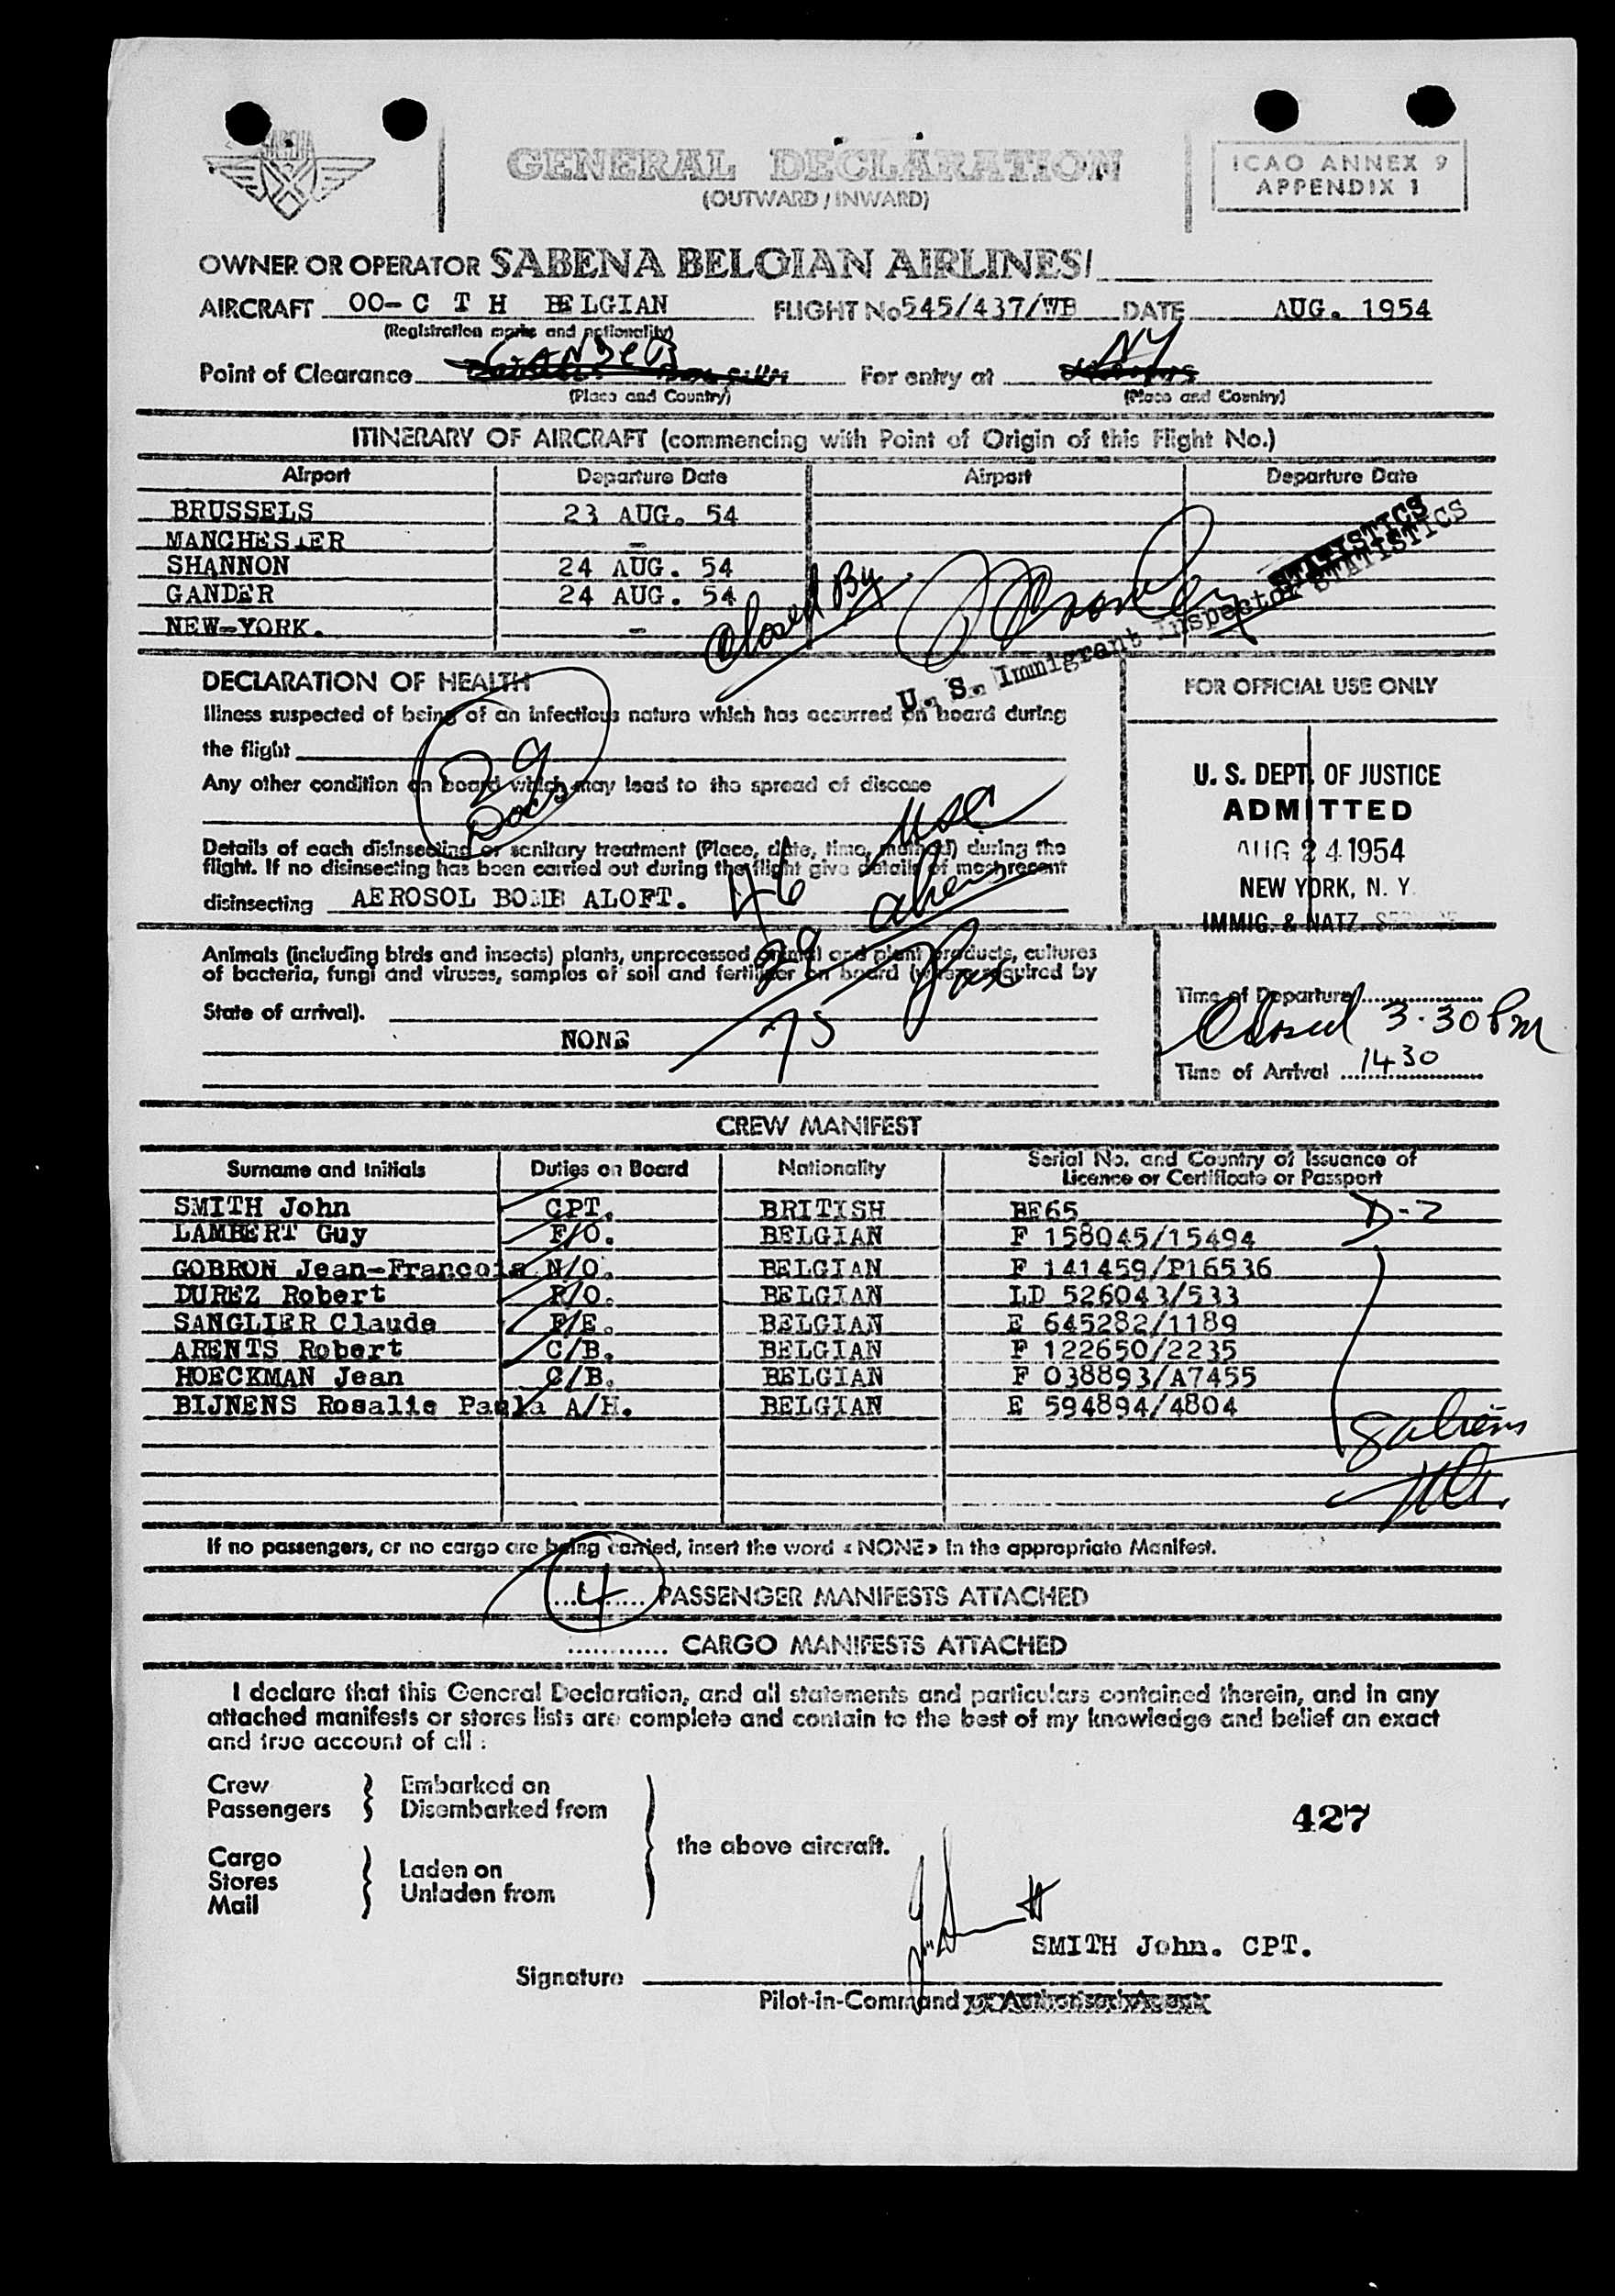 GENERAL DECLARATION
(OUTWARD / INWARD)
ICAO ANNEX 9
APPENDIX 1
OWNER OR OPERATOR SABENA BELGIAN AIRLINES/
AIRCRAFT OO-C T H BELGIAN FLIGHT No 545/437/WB DATE AUG. 1954
(Registration marks and nationality)
GANDER NY
Point of Clearance For entry at
(Place and Country) (Place and Country)
ITINERARY OF AIRCRAFT (commencing with Point of Origin of this Flight No.)
Airport Departure Date Airport Departure Date
BRUSSELS 23 AUG. 54
MANCHESTER -
SHANNON 24 AUG. 54
GANDER 24 AUG. 54
NEW-YORK. -
Closed By
U. S. Immigrant Inspector STATISTICS
STATISTICS
DECLARATION OF HEALTH
Illness suspected of being of an infectious nature which has occurred on board during
the flight
Any other condition on board which may lead to the spread of disease
29
Docs
Details of each disinsecting or sanitary treatment (Place, date, time, method) during the
flight. If no disinsecting has been carried out during the flight give details of most recent
disinsecting AEROSOL BOMB ALOFT.
46 USC
29 alien
75 Pax
FOR OFFICIAL USE ONLY
U. S. DEPT. OF JUSTICE
ADMITTED
AUG 24 1954
NEW YORK, N. Y.
IMMIG. & NATZ. SERVICE
Animals (including birds and insects) plants, unprocessed animal and plant products, cultures
of bacteria, fungi and viruses, samples of soil and fertilizer on board (where required by
State of arrival).
NONE
Time of Departure
Closed 3.30 Pm
Time of Arrival 1430
CREW MANIFEST
Surname and Initials Duties on Board Nationality Serial No. and Country of Issuance of
Licence or Certificate or Passport
SMITH John CPT. BRITISH BE65 D-2
LAMBERT Guy F/O. BELGIAN F 158045/15494
GOBRON Jean-Francois N/O. BELGIAN F 141459/P16536
DUREZ Robert R/O. BELGIAN LD 526043/533
SANGLIER Claude F/E. BELGIAN E 645282/1189
ARENTS Robert C/B. BELGIAN F 122650/2235
HOECKMAN Jean C/B. BELGIAN F 038893/A7455
BIJNENS Rosalie Paula A/H. BELGIAN E 594894/4804
8 aliens
If no passengers, or no cargo are being carried, insert the word « NONE » in the appropriate Manifest.
4 PASSENGER MANIFESTS ATTACHED
............ CARGO MANIFESTS ATTACHED
I declare that this General Declaration, and all statements and particulars contained therein, and in any
attached manifests or stores lists are complete and contain to the best of my knowledge and belief an exact
and true account of all :
Crew Embarked on
Passengers Disembarked from
the above aircraft.
Cargo Laden on
Stores Unladen from
Mail
427
SMITH John. CPT.
Signature
Pilot-in-Command or Authorised Agent